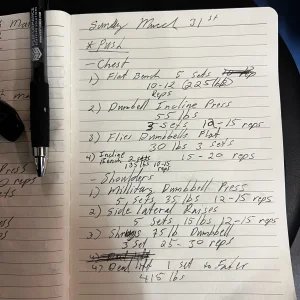 Sunday March 31st
* Push
- Chest
1) Flat Bench 5 Sets
10-12 (225lbs)
Reps
2) Dumbell Incline Press
55 lbs
3 Sets 10-15 reps
3) Flies Dumbbells Flat
30 lbs 3 sets
15-20 reps
4) Incline Bench 2 sets 135lbs 10-15 reps
- Shoulders
1) Millitary Dumbbell Press
5 Sets, 35 lbs 12-15 reps
2) Side Lateral Raises
5 Sets 15lbs 12-15 reps
3) Shrugs 75lb Dumbell
3 Set 25-30 reps
4) Dead lift 1 set to Failer
415 lbs